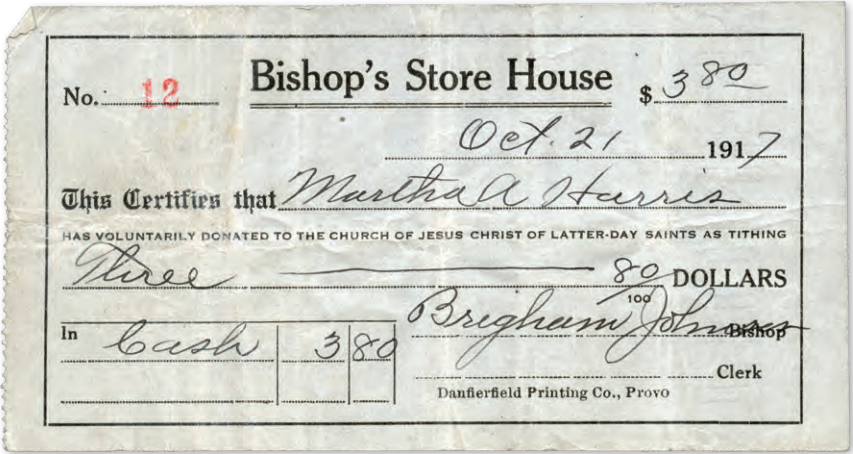 No. 12 Bishop's Store House $ 3 80
Oct. 21 1917
This Certifies that Martha A Harris
HAS VOLUNTARILY DONATED TO THE CHURCH OF JESUS CHRIST OF LATTER-DAY SAINTS AS TITHING
Three 80/100 DOLLARS
In Cash 3 80
Brigham Johnson Bishop
Clerk
Danfierfield Printing Co., Provo